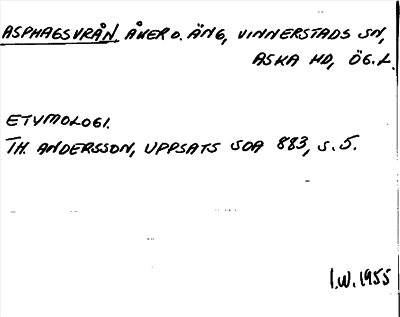 ASPHAGSVRÅN. ÅKER O. ÄNG, VINNERSTADS SN,
ASKA HD, ÖG.L.
ETYMOLOGI.
TH. ANDERSSON, UPPSATS SOA 883, S. 5.
I.W. 1955